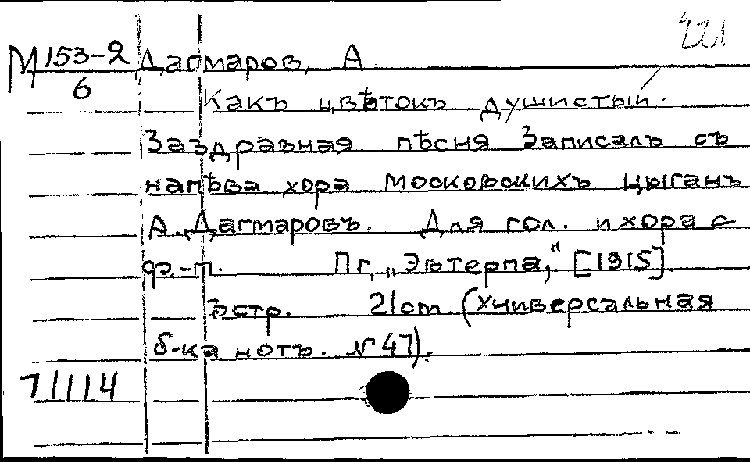 М 153-2 Дагмаров, А
6
Какъ цвѣтокъ душистый.
Заздравная пѣсня Записалъ съ
напѣва хора московскихъ цыганъ
А. Дагмаровъ. Для гол. и хора с
ф.-п. Пг, „Эвтерпа," [1915].
3 стр. 21 cm (Универсальная
б-ка нотъ. N 47).
71114